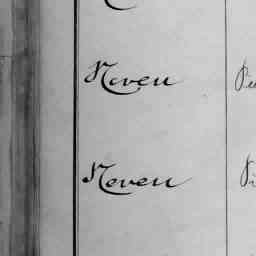 Neven
Neven